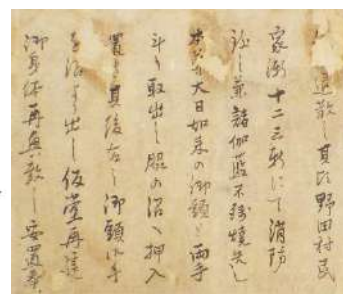 退散し其頃野田村民
家漸十二三軒にて消防
諸伽藍不残焼失し
本尊大日如来の御頭と両手
斗り取出し脇の沼へ押入
置き其後右之御頭御手
を出し仮堂再建
御身体再興致し安置